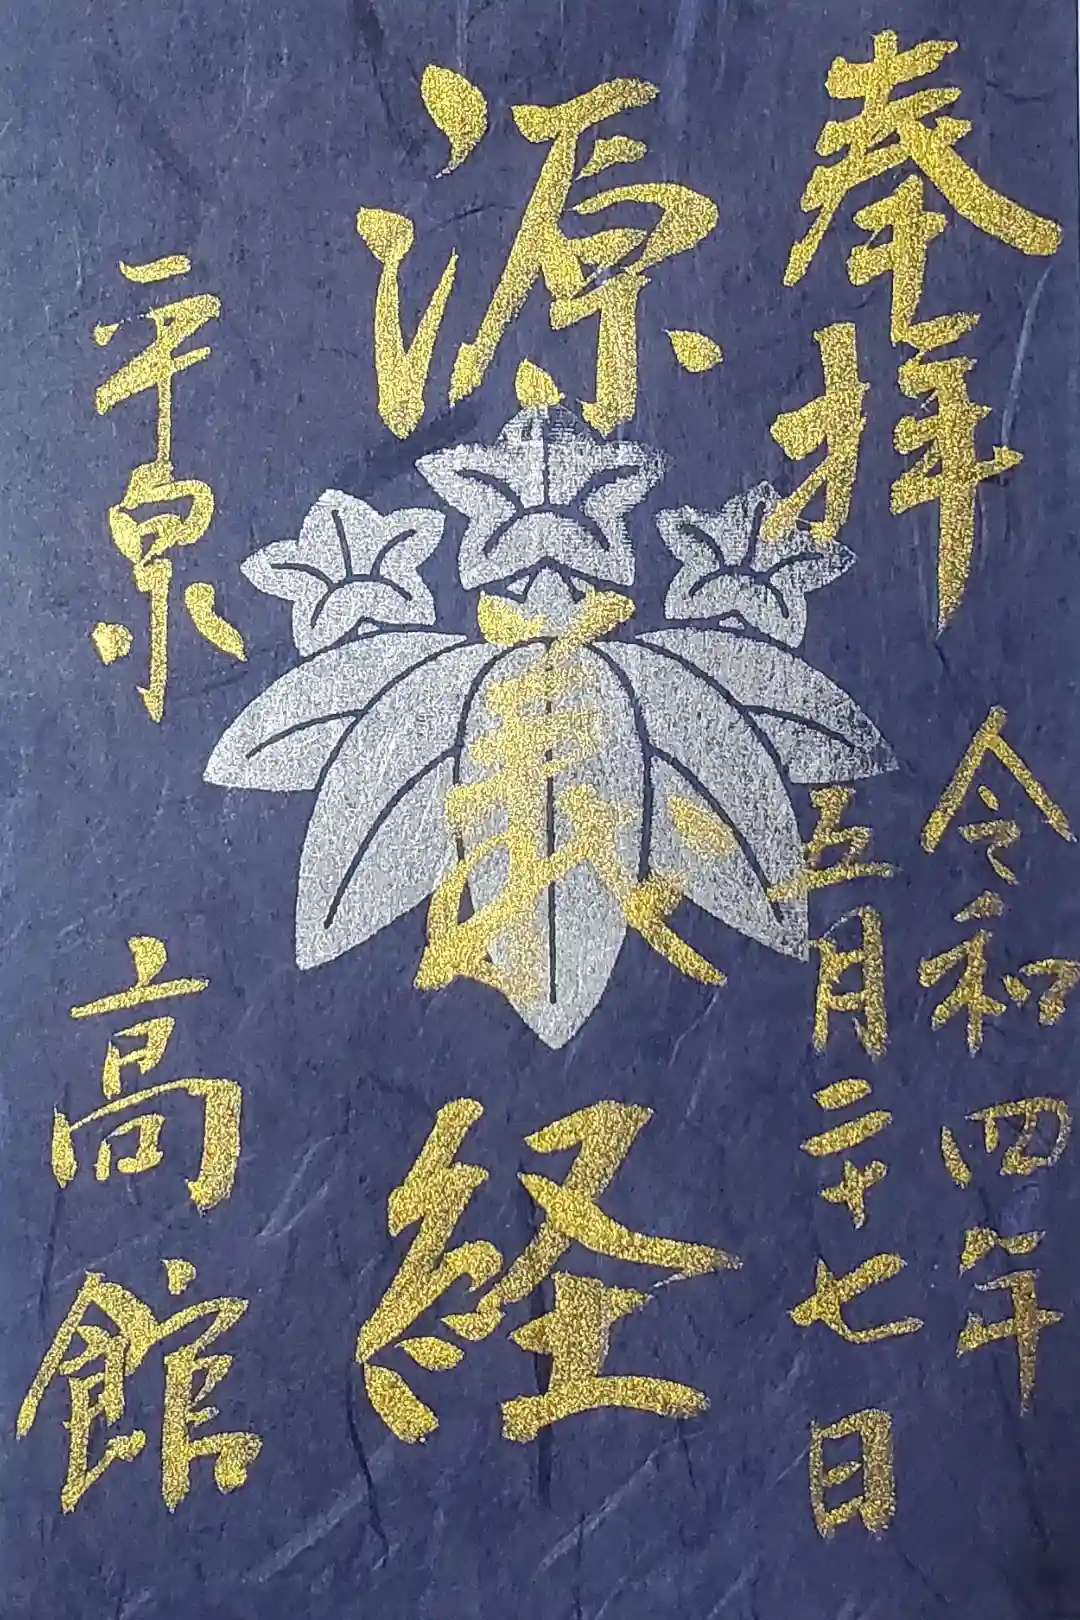 奉拝
令和四年
五月二十七日
源義経
平泉
高館